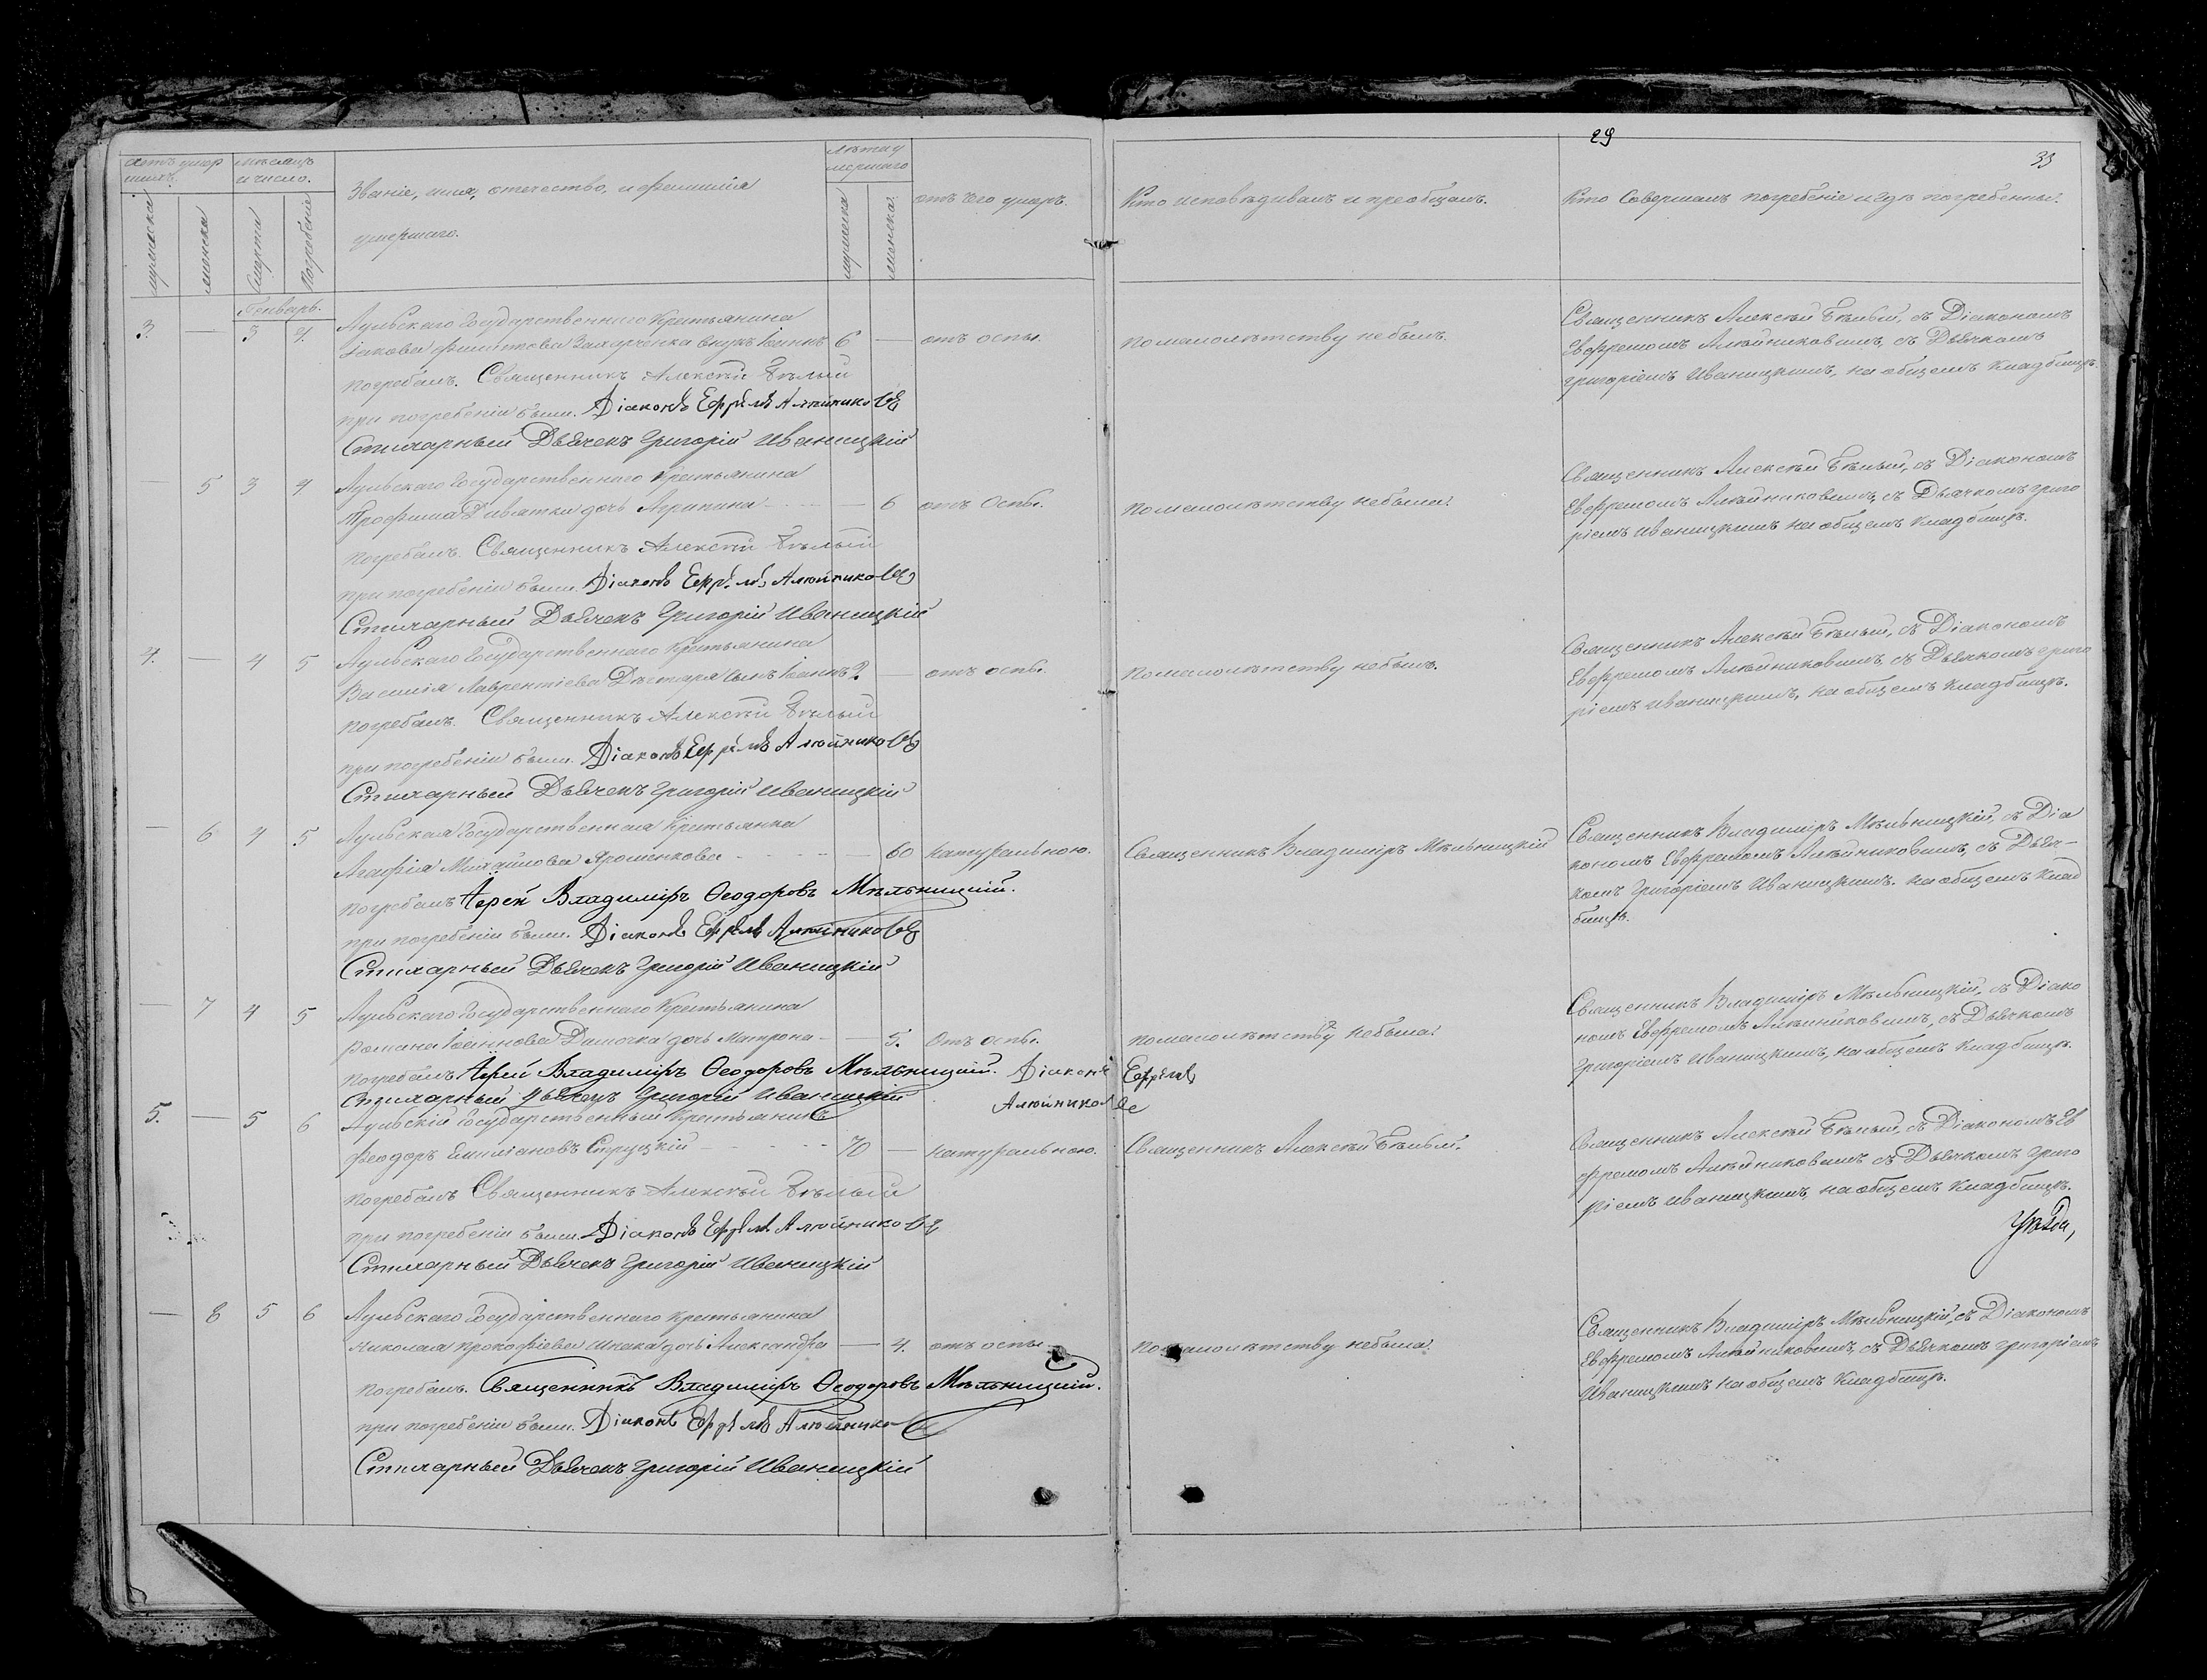 29
33
счетъ умер
шихъ.
мѣсяцъ
и число.
мужеска
женска
смерти
погребенія
Званіе, имя, отечество, и фамилія
умершаго.
лѣта у
мершаго
мужеска
женска
отъ чего умеръ.
Кто исповѣдывалъ и пріобщалъ.
Кто совершалъ погребеніе и гдѣ погребенны.
Генварь.
3. — 3 4.
Аульскаго Государственнаго Крестьянина
Іакова Филиппова Захарченка внукъ Іоаннъ 6 — отъ оспы.
по малолѣтству небылъ.
Священникъ Алексѣй Бѣлый, съ Діакономъ
Ефремомъ Алѣйниковымъ, съ Дьячкомъ
Григоріемъ Иваницкимъ, на общемъ кладбищѣ.
погребалъ. Священникъ Алексѣй Бѣлый
при погребеніи были. Діаконъ Ефремъ Алейниковъ
Стихарный Дьячекъ Григорій Иваницкій
— 5 3 4
Аульскаго Государственнаго Крестьянина
Трофима Дивятки дочь Агрипина — 6 отъ Оспы.
по малолѣтству небыла.
Священникъ Алексѣй Бѣлый, съ Діакономъ
Ефремомъ Алѣйниковымъ, съ Дьячкомъ Григо
ріемъ Иваницкимъ на общемъ кладбищѣ.
погребалъ. Священникъ Алексѣй Бѣлый
при погребеніи были. Діаконъ Ефремъ Алейниковъ
Стихарный Дьячекъ Григорій Иваницкій
4. — 4 5
Аульскаго Государственнаго Крестьянина
Василія Лаврентіева Дѣхтаря сынъ Іоаннъ 2. — отъ оспы.
по малолѣтству небылъ.
Священникъ Алексѣй Бѣлый, съ Діакономъ
Ефремомъ Алѣйниковымъ, съ Дьячкомъ Григо
ріемъ Иваницкимъ, на общемъ кладбищѣ.
погребалъ. Священникъ Алексѣй Бѣлый
при погребеніи были. Діаконъ Ефремъ Алейниковъ
Стихарный Дьячекъ Григорій Иваницкій
— 6 4 5
Аульская Государственная Крестьянка
Агафія Михайлова Ярошенкова — 60 натуральною.
Священникъ Владиміръ Мѣльницкій
Священникъ Владиміръ Мѣльницкій, съ Діа
кономъ Ефремомъ Алѣйниковымъ, съ Дьяч-
комъ Григоріемъ Иваницкимъ. на общемъ клад
бищѣ.
погребалъ Іерей Владиміръ Ѳеодоровъ Мѣльницкій.
при погребеніи были. Діаконъ Ефремъ Алейниковъ
Стихарный Дьячекъ Григорій Иваницкій
— 7 4 5
Аульскаго Государственнаго Крестьянина
Романа Іоаннова Дамочка дочь Матрона — 5. Отъ оспы.
по малолѣтству небыла.
Священникъ Владиміръ Мѣльницкій, съ Діако
номъ Ефремомъ Алѣйниковымъ, съ Дьячкомъ
Григоріемъ Иваницкимъ, на общемъ кладбищѣ.
погребалъ Іерей Владиміръ Ѳеодоровъ Мѣльницкій. Діаконъ Ефремъ
Алейниковъ
Стихарный Дьячекъ Григорій Иваницкій
5. — 5 6
Аульскій Государственный Крестьянинъ
Феодоръ Емиліановъ Струцкій 70 — натуральною.
Священникъ Алексѣй Бѣлый.
Священникъ Алексѣй Бѣлый, съ Діакономъ Еф
фремомъ Алѣйниковымъ съ Дьячкомъ Григо
ріемъ Иваницкимъ на общемъ кладбищѣ.
погребалъ Священникъ Алексѣй Бѣлый
при погребеніи были. Діаконъ Ефремъ Алейниковъ
Уѣзда,
Стихарный Дьячекъ Григорій Иваницкій
— 8 5 6
Аульскаго Государственнаго Крестьянина
Николая Прокофіева Шпака дочь Александра — 4. отъ оспы.
по малолѣтству небыла.
Священникъ Владиміръ Мѣльницкій, съ Діакономъ
Ефремомъ Алѣйниковымъ, съ Дьячкомъ Григоріемъ
Иваницкимъ на общемъ кладбищѣ.
погребалъ. Священникъ Владиміръ Ѳеодоровъ Мѣльницкій.
при погребеніи были. Діаконъ Ефремъ Алейниковъ
Стихарный Дьячекъ Григорій Иваницкій